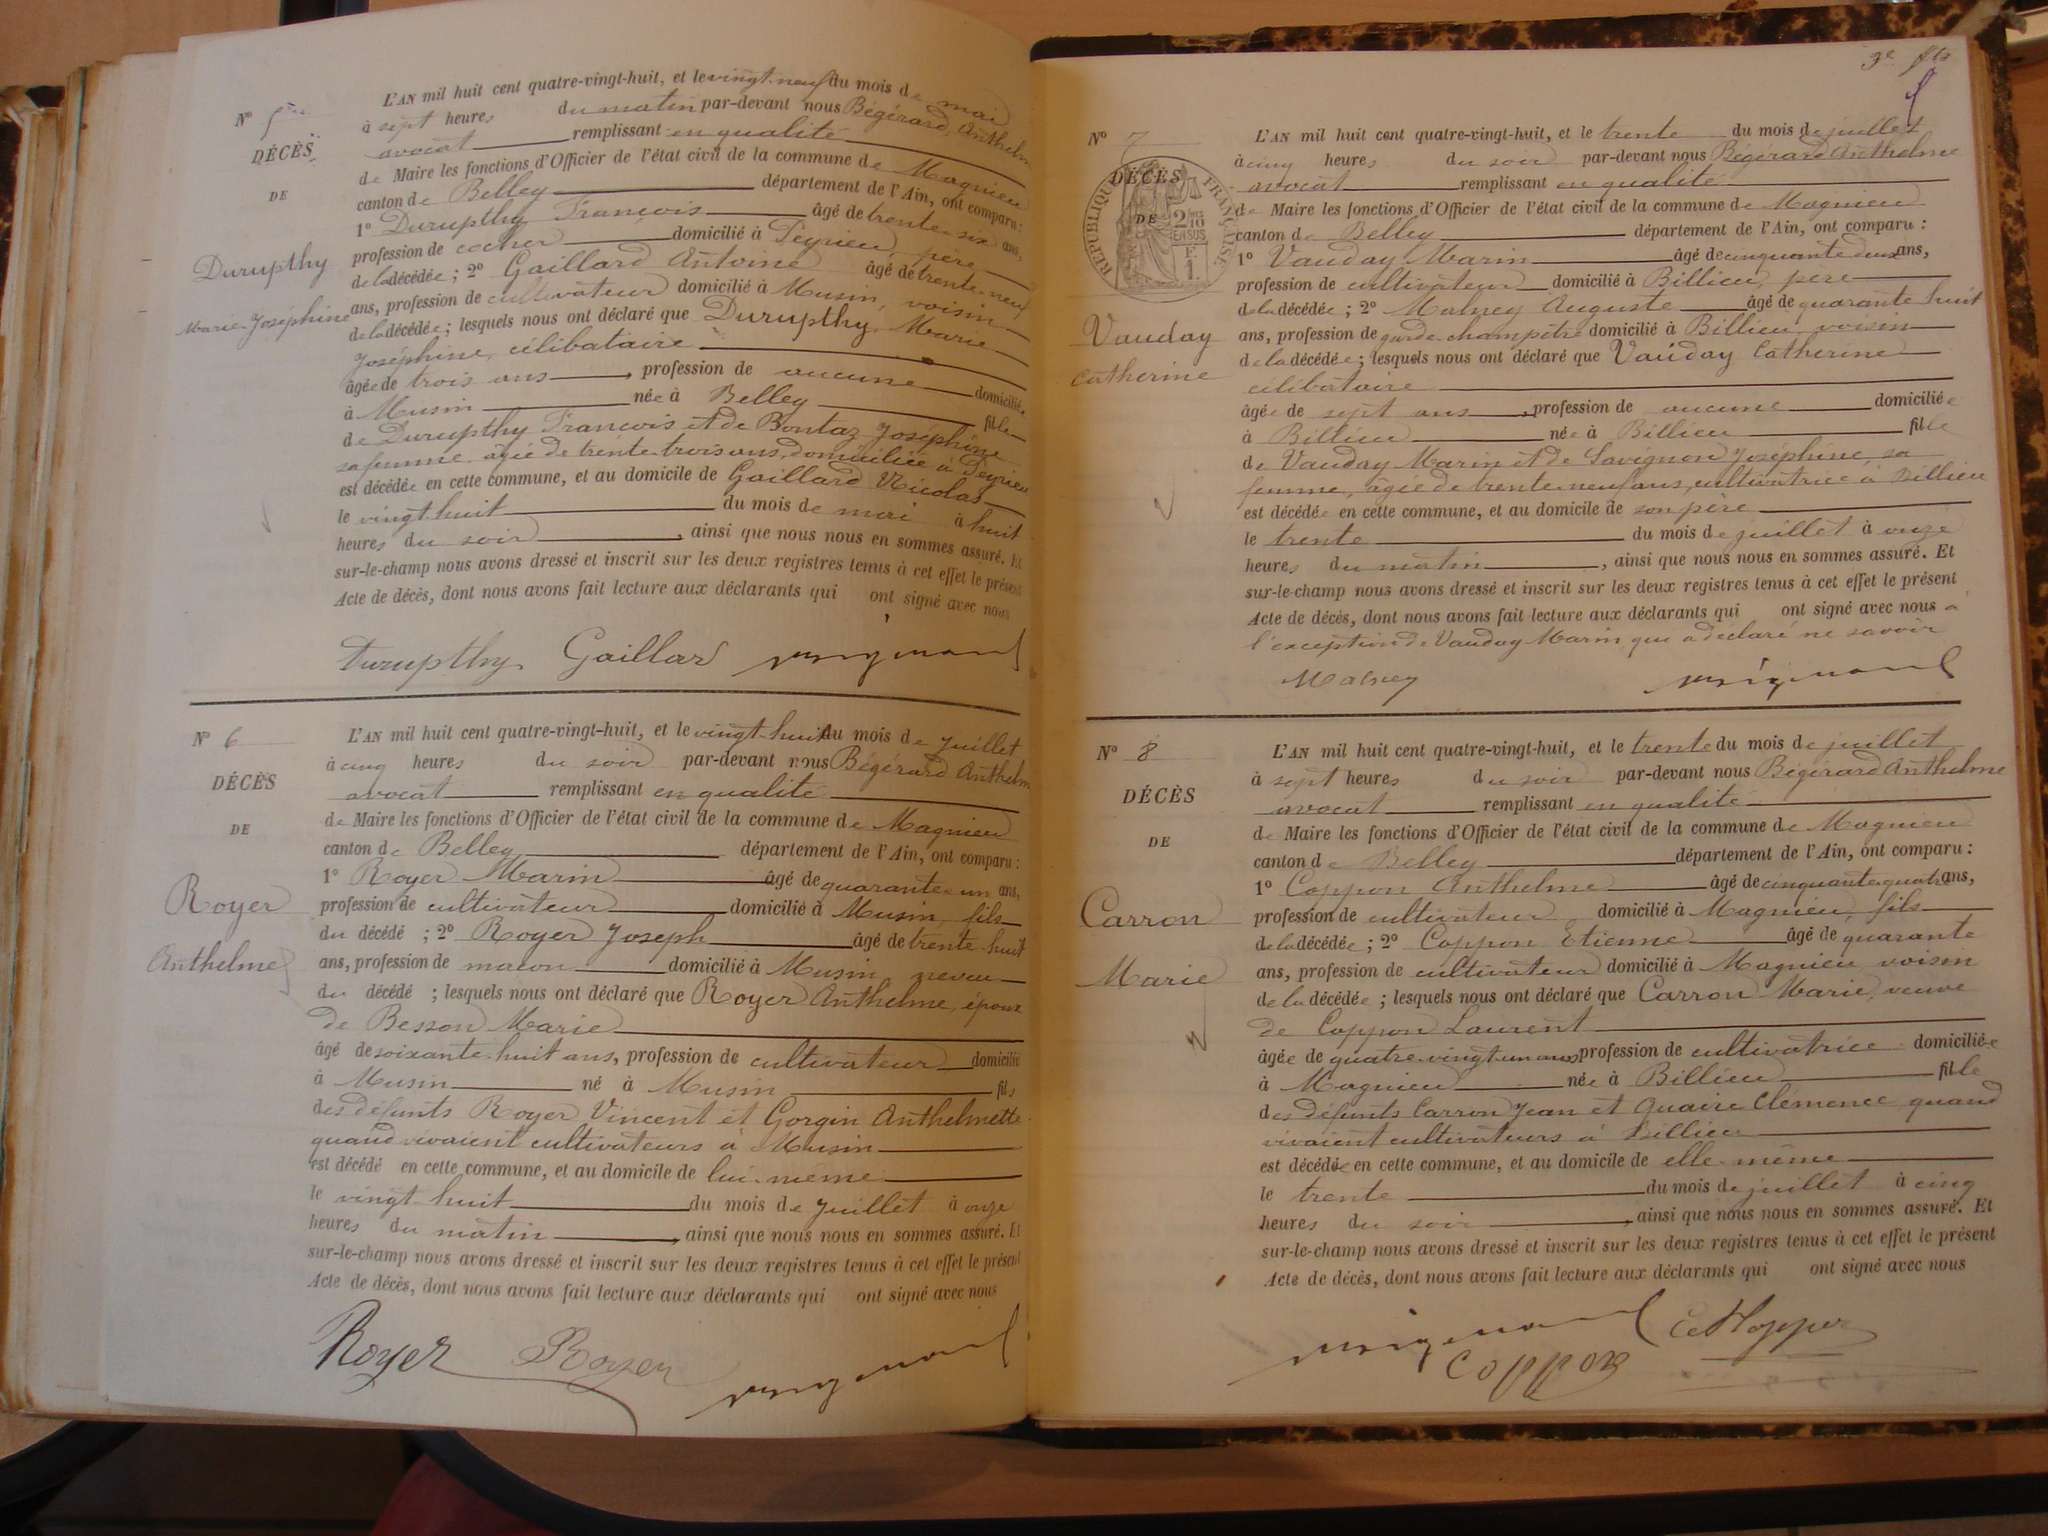 N° 5
DÉCÈS
DE
Durupthy
Marie Joséphine
L'AN mil huit cent quatre-vingt-huit, et le vingt neuf du mois de mai
à sept heures du matin par-devant nous Bégérard Anthelme
avocat remplissant en qualité
de Maire les fonctions d'Officier de l'état civil de la commune de Magnieu
canton de Belley département de l'Ain, ont comparu :
1° Durupthy François âgé de trente six ans,
profession de cocher domicilié à Peyrieu, père
de la décédée ; 2° Gaillard Antoine âgé de trente neuf
ans, profession de cultivateur domicilié à Musin, voisin
de la décédée ; lesquels nous ont déclaré que Durupthy Marie
Joséphine, célibataire
âgée de trois ans, profession de aucune domiciliée
à Musin née à Belley fille
de Durupthy François et de Bontaz Joséphine
sa femme âgée de trente trois ans, domiciliée à Peyrieu
est décédée en cette commune, et au domicile de Gaillard Nicolas
le vingt huit du mois de mai à huit
heures du soir, ainsi que nous nous en sommes assuré. Et
sur-le-champ nous avons dressé et inscrit sur les deux registres tenus à cet effet le présent
Acte de décès, dont nous avons fait lecture aux déclarants qui ont signé avec nous
Durupthy Gaillard
N° 6
DÉCÈS
DE
Royer
Anthelme
L'AN mil huit cent quatre-vingt-huit, et le vingt huit du mois de juillet
à cinq heures du soir par-devant nous Bégérard Anthelm
avocat remplissant en qualité
de Maire les fonctions d'Officier de l'état civil de la commune de Magnieu
canton de Belley département de l'Ain, ont comparu :
1° Royer Marin âgé de quarante un ans,
profession de cultivateur domicilié à Musin, fils
du décédé ; 2° Royer Joseph âgé de trente huit
ans, profession de macon domicilié à Musin neveu
du décédé ; lesquels nous ont déclaré que Royer Anthelme, époux
de Besson Marie
âgé de soixante huit ans, profession de cultivateur domicilié
à Musin né à Musin fils
des défunts Royer Vincent et Gorgin Anthelmette
quand vivaient cultivateurs à Musin
est décédé en cette commune, et au domicile de lui-même
le vingt huit du mois de juillet à onze
heures du matin, ainsi que nous nous en sommes assuré. Et
sur-le-champ nous avons dressé et inscrit sur les deux registres tenus à cet effet le présent
Acte de décès, dont nous avons fait lecture aux déclarants qui ont signé avec nous
Royer Royer
3e
N° 7
DÉCÈS
DE
RÉPUBLIQUE FRANÇAISE
2/10 EN SUS
F. 1.
Vauday
Catherine
L'AN mil huit cent quatre-vingt-huit, et le trente du mois de juillet
à cinq heures du soir par-devant nous Bégérard Anthelme
avocat remplissant en qualité
de Maire les fonctions d'Officier de l'état civil de la commune de Magnieu
canton de Belley département de l'Ain, ont comparu :
1° Vauday Marin âgé de cinquante deux ans,
profession de cultivateur domicilié à Billieu, père
de la décédée ; 2° Malney Auguste âgé de quarante huit
ans, profession de garde champêtre domicilié à Billieu voisin
de la décédée ; lesquels nous ont déclaré que Vauday Catherine
célibataire
âgée de sept ans, profession de aucune domiciliée
à Billieu née à Billieu fille
de Vauday Marin et de Savignon Joséphine, sa
femme, âgée de trente neuf ans, cultivatrice à Billieu
est décédée en cette commune, et au domicile de son père
le trente du mois de juillet à onze
heures du matin, ainsi que nous nous en sommes assuré. Et
sur-le-champ nous avons dressé et inscrit sur les deux registres tenus à cet effet le présent
Acte de décès, dont nous avons fait lecture aux déclarants qui ont signé avec nous à
l'exception de Vauday Marin qui a déclaré ne savoir
Malney
N° 8
DÉCÈS
DE
Carron
Marie
L'AN mil huit cent quatre-vingt-huit, et le trente du mois de juillet
à sept heures du soir par-devant nous Bégérard Anthelme
avocat remplissant en qualité
de Maire les fonctions d'Officier de l'état civil de la commune de Magnieu
canton de Belley département de l'Ain, ont comparu :
1° Coppon Anthelme âgé de cinquante quatre ans,
profession de cultivateur domicilié à Magnieu, fils
de la décédée ; 2° Coppon Etienne âgé de quarante
ans, profession de cultivateur domicilié à Magnieu voisin
de la décédée ; lesquels nous ont déclaré que Carron Marie, veuve
de Coppon Laurent
âgée de quatre-vingt un ans profession de cultivatrice domiciliée
à Magnieu née à Billieu fille
des défunts Carron Jean et Quaire Clémence quand
vivaient cultivateurs à Billieu
est décédée en cette commune, et au domicile de elle-même
le trente du mois de juillet à cinq
heures du soir, ainsi que nous nous en sommes assuré. Et
sur-le-champ nous avons dressé et inscrit sur les deux registres tenus à cet effet le présent
Acte de décès, dont nous avons fait lecture aux déclarants qui ont signé avec nous
Coppon